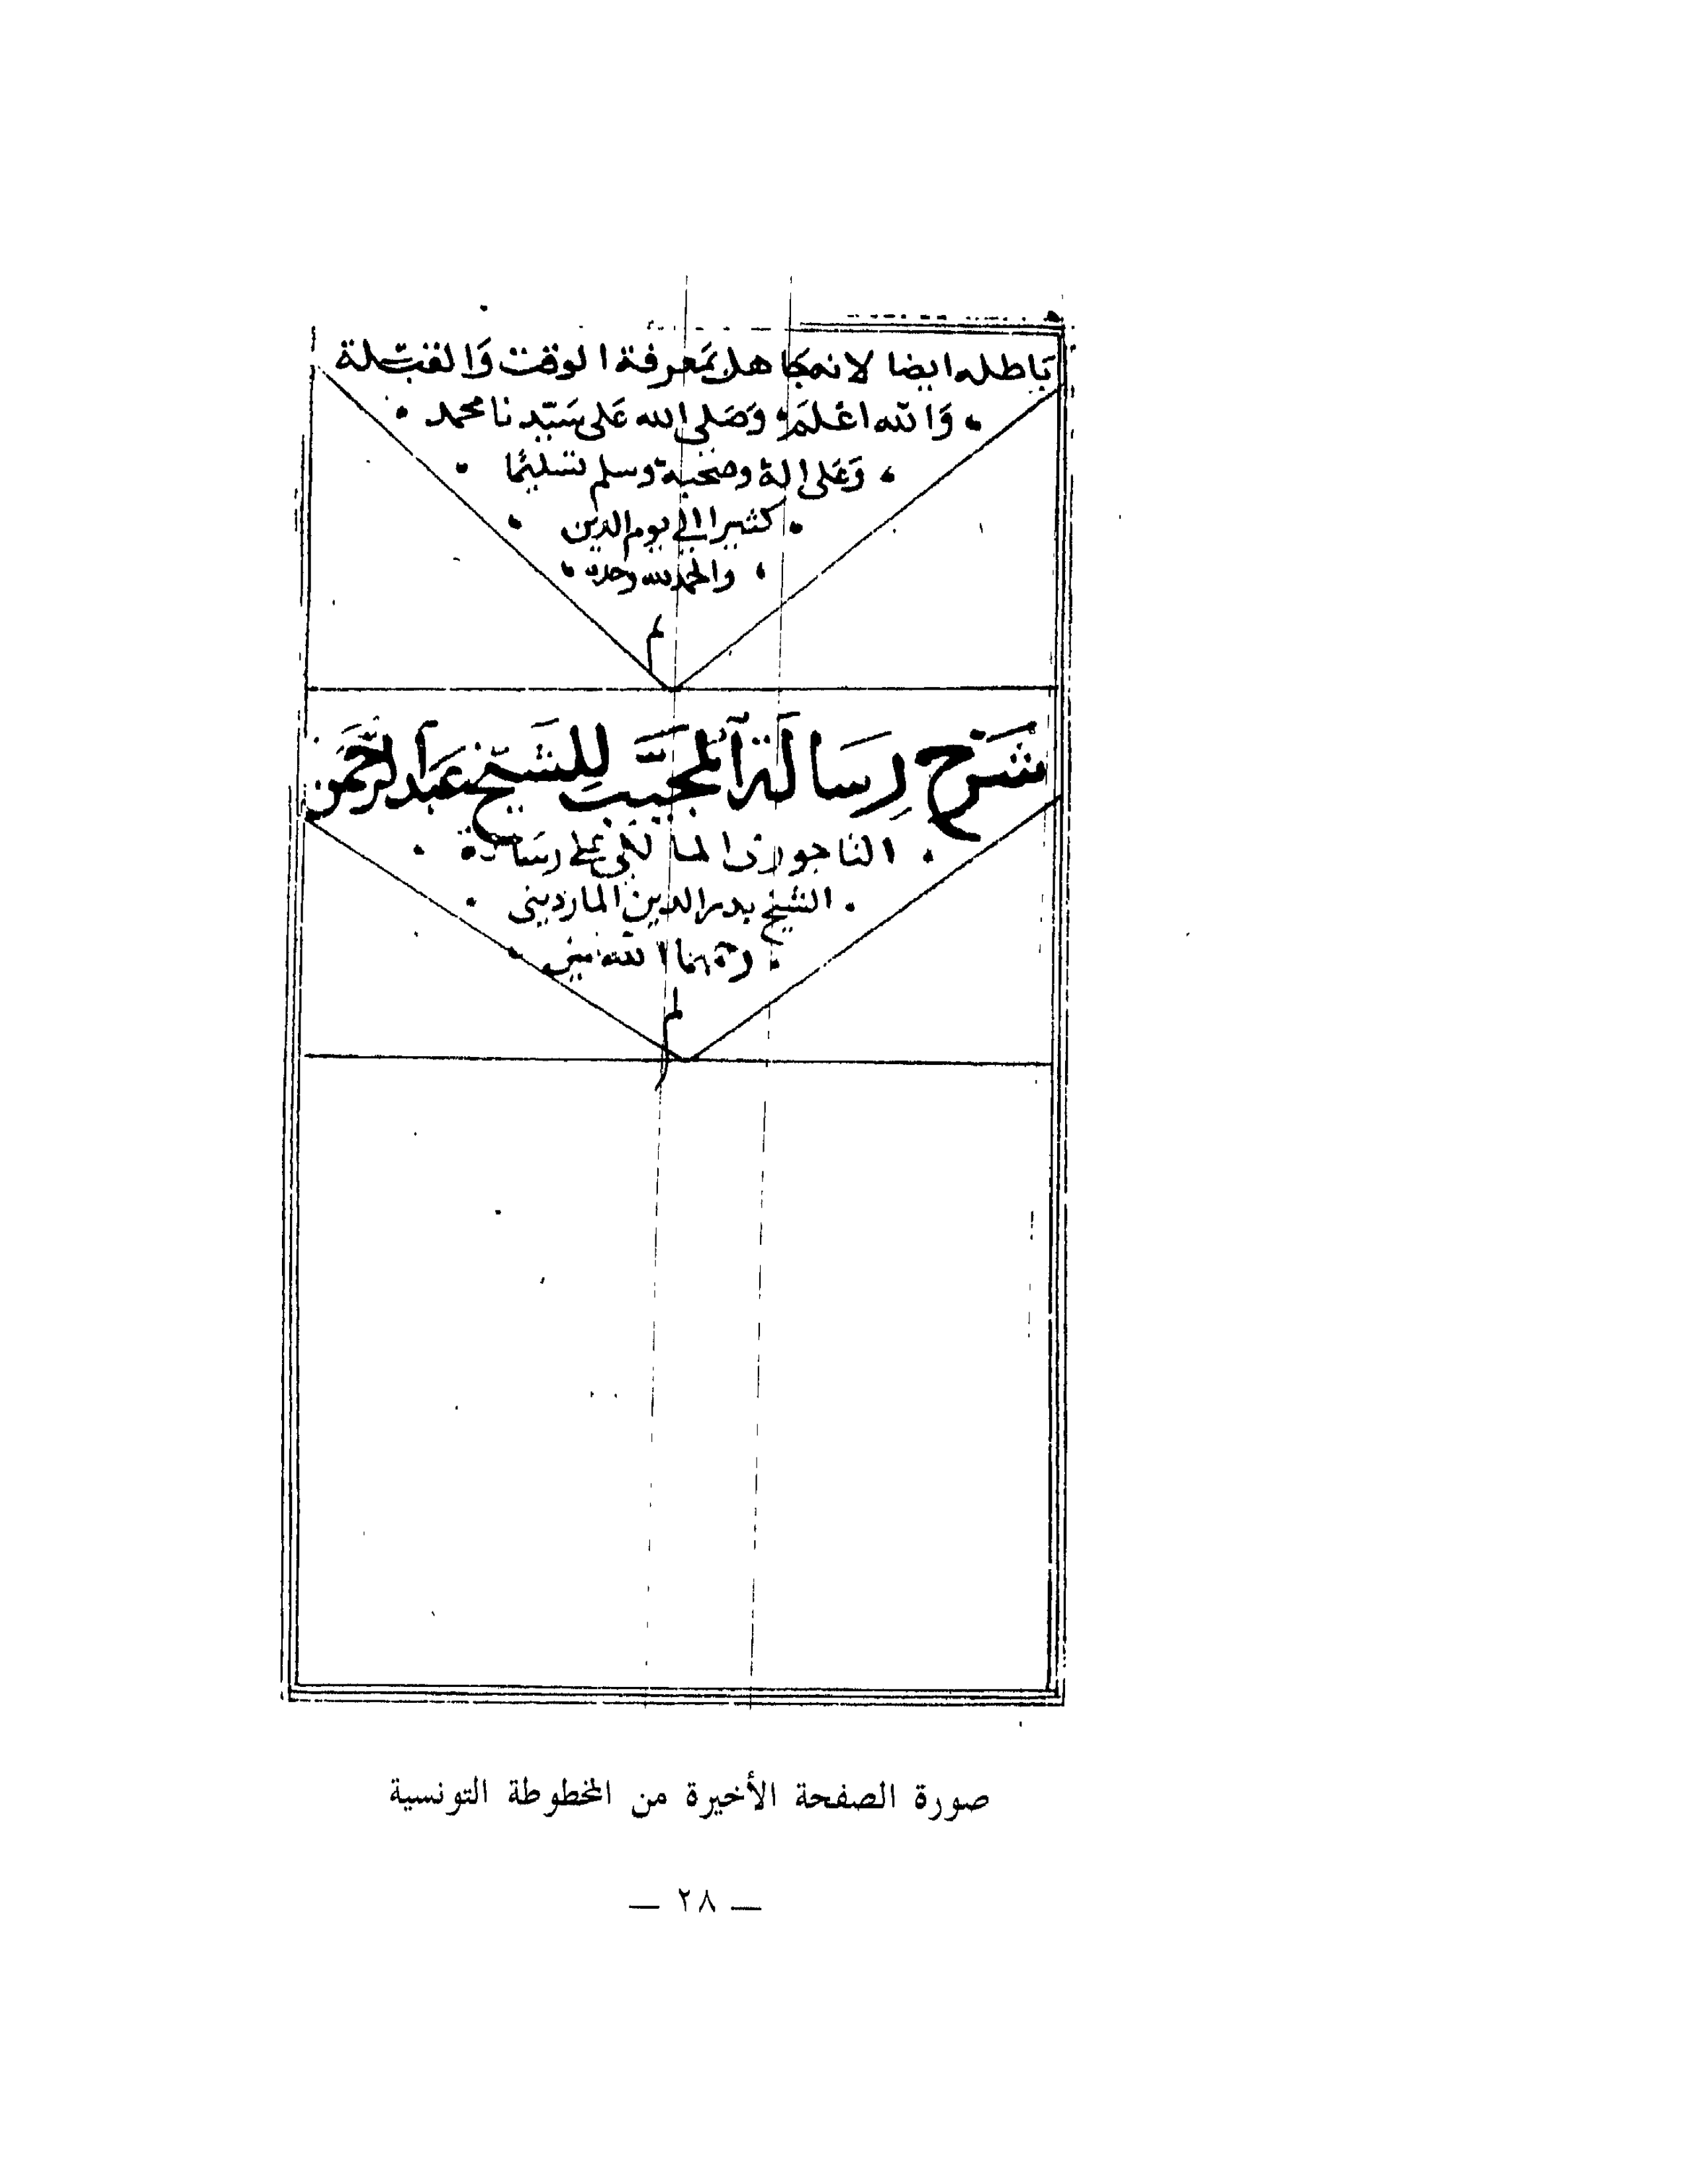 باطله ايضا لانه جاهل بمعرفة الوقت والقبلة
والله اعلم وصلى الله على سيدنا محمد
وعلى اله وصحبه وسلم تسليما
كثيرا الى يوم الدين
والحمد لله وحده
شرح رسالة المجيب للشيخ عبد الرحمن
التاجورى المالكى على رسالة
الشيخ بدر الدين الماردينى
رحمهما الله
صورة الصفحة الأخيرة من المخطوطة التونسية
— ٢٨ —